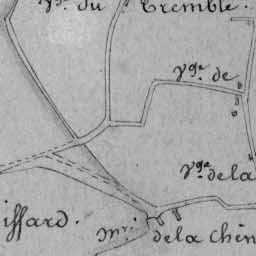 vge. du Tremble.
vge. de
vge. de la
iffard.
mri. de la Chên